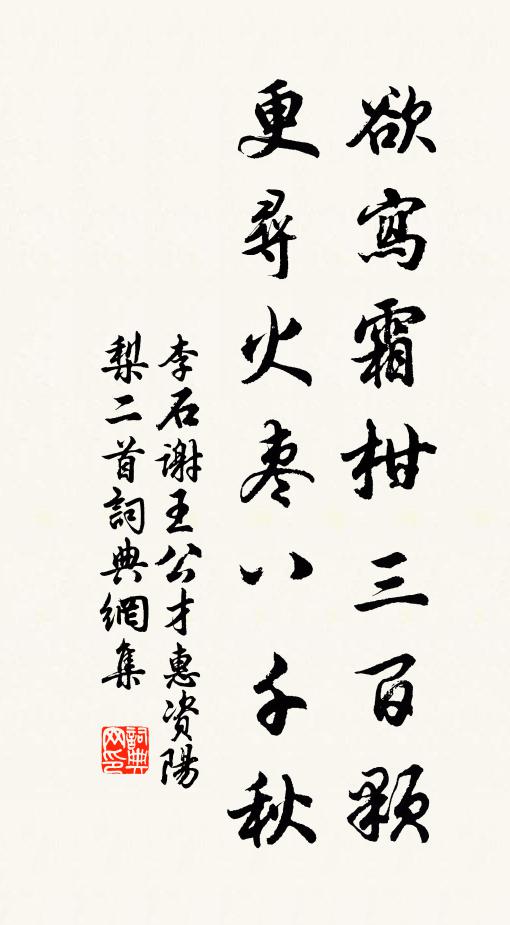 欲寫霜柑三百顆
更尋火枣八千秋
李石谢王公才惠资陽
梨二首詞典網集
詞典
网印